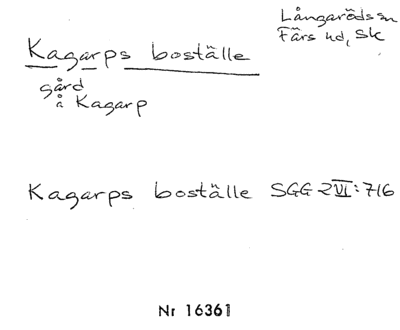 Långaröds sn
Färs hd, Sk
Kagarps boställe
gård
å Kagarp
Kagarps boställe SGG 2VI:716
Nr 16361